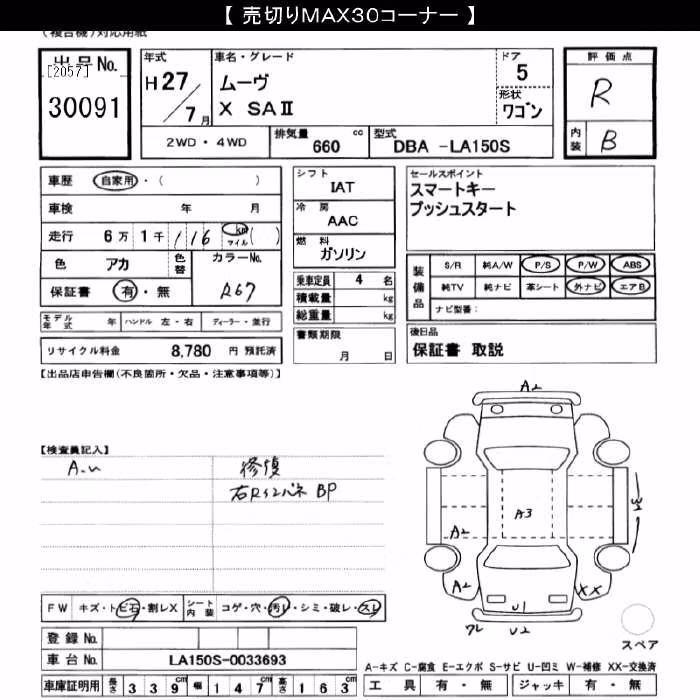 【 売切りMAX30コーナー 】
(複合機)対応用紙
出品No.
[2057]
30091
年式
H27/7月
車名・グレード
ムーヴ
X SAⅡ
ドア
5
形状
ワゴン
評価点
R
内装
B
2WD・4WD
排気量 660 cc
型式 DBA -LA150S
車歴 自家用・( )
車検 年 月
走行 6万 1千 116 km マイル ( )
色 アカ 色替 カラーNo. R67
保証書 有・無
モデル年式 年 ハンドル 左・右 ディーラー・並行
リサイクル料金 8,780 円 預託済
シフト
IAT
冷房
AAC
燃料
ガソリン
乗車定員 4 名
積載量 kg
総重量 kg
書類期限
月 日
セールスポイント
スマートキー
プッシュスタート
装備品
S/R 純A/W P/S P/W ABS
純TV 純ナビ 革シート 外ナビ エアB
ナビ型番:
後日品
保証書 取説
【出品店申告欄(不良箇所・欠品・注意事項等)】
【検査員記入】
修復
BP
A2
A3
A2
A2
XX
U1
U2
FW キズ・トビ石・割レX シート内装 コゲ・穴・汚レ・シミ・破レ・スレ
登録 No.
車台 No. LA150S-0033693
車庫証明用 長さ 339cm 幅 147cm 高さ 163cm
スペア
A-キズ C-腐食 E-エクボ S-サビ U-凹ミ W-補修 XX-交換済
工具 有・無 ジャッキ 有・無